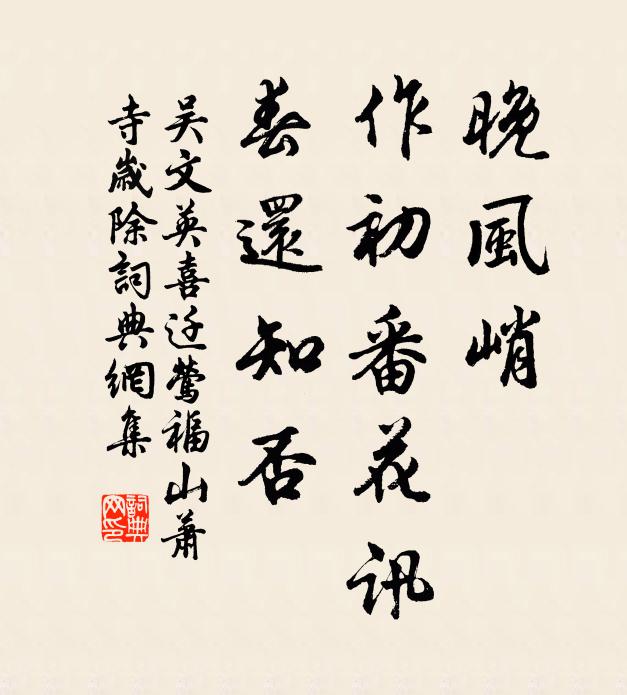 晚風峭
作初番花訊
春還知否
吴文英喜迁鶯福山蕭
寺歲除詞典網集
詞典網印